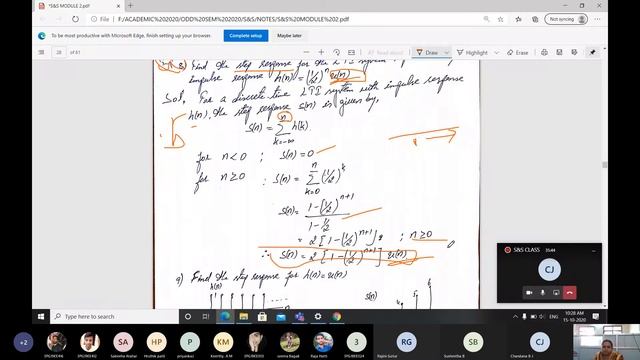 *S&S MODULE 2.pdf
F:/ACADEMIC%202020/ODD%20SEM%202020/S&S/NOTES/S&S%20MODULE%202.pdf
Not syncing
To be most productive with Microsoft Edge, finish setting up your browser.
Complete setup
Maybe later
28 of 61
Draw
Erase
Find the step response for the LTI system
impulse response h(n) = (1/2)^n u(n)
Sol, For a discrete time LTI system with impulse response
h(n), the step response s(n) is given by,
S(n) = Σ_{k=-∞}^{n} h(k)
for n<0 ; S(n) = 0
for n≥0 : S(n) = Σ_{k=0}^{n} (1/2)^k
S(n) = 1-(1/2)^{n+1} / 1-1/2
= 2 [1-(1/2)^{n+1}] ; n≥0
∴ S(n) = 2 [1-(1/2)^{n+1}] u(n)
9) Find the step response for h(n) = u(n)
h(n)
S(n)
S&S CLASS
35:44
CJ
Type here to search
ENG
10:28 AM
15-10-2020
+2
SA
HP
P
KM
RG
SB
CJ
Sakeena Azahar
Hruthik patil
priyankacl
Keerthy. A M
seema Bagali
Raja Patti
Rajini Golur
Sumanitha B
Chandana B J